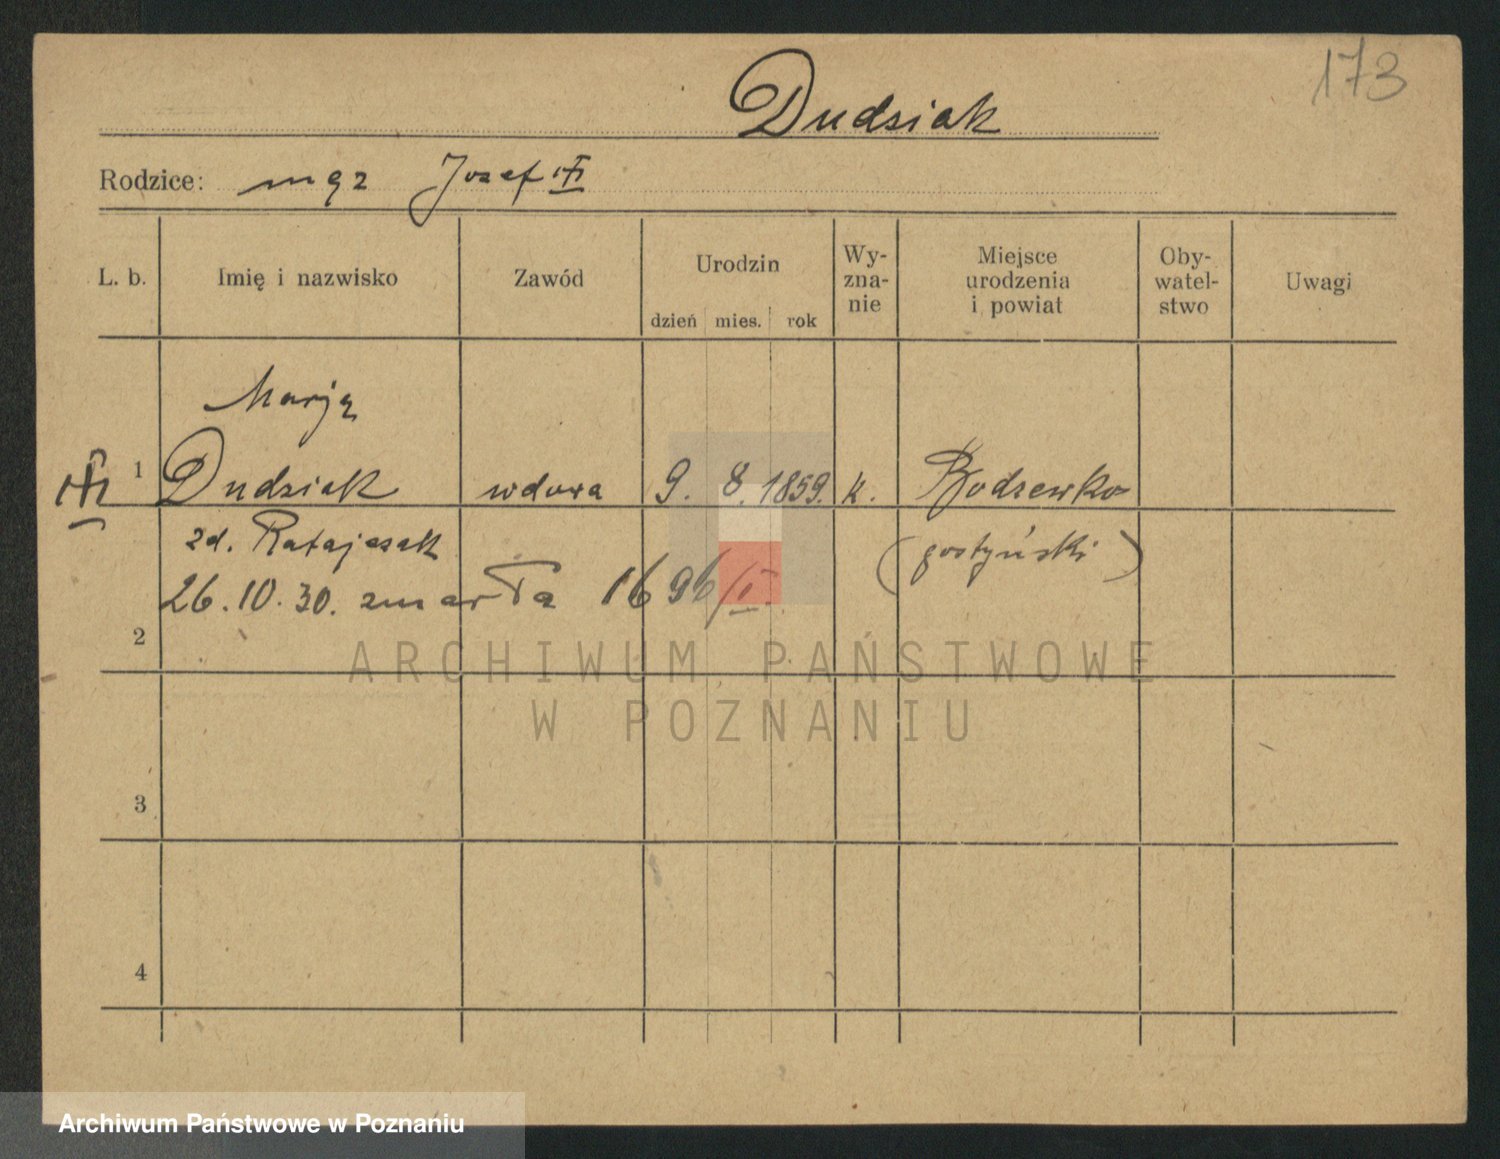 173
Dudziak
Rodzice: mąż Józef
L. b. Imię i nazwisko Zawód Urodzin dzień mies. rok Wy-zna-nie Miejsce urodzenia i powiat Oby-watel-stwo Uwagi
Marja
1 Dudziak wdowa 9. 8. 1859. k. Bodzewko
zd. Ratajczak (gostyński)
26.10.30. zmarła 1696/I.
2
ARCHIWUM PAŃSTWOWE
W POZNANIU
3
4
Archiwum Państwowe w Poznaniu